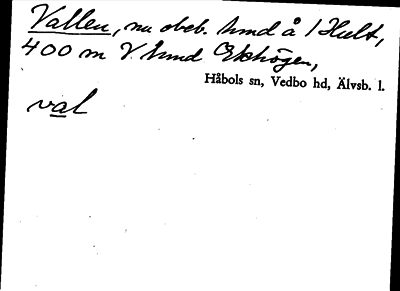 Vallen, nu obeb. hmd å 1 Hult,
400 m V. hmd Ekhögen,
Håbols sn, Vedbo hd, Älvsb. l.
val